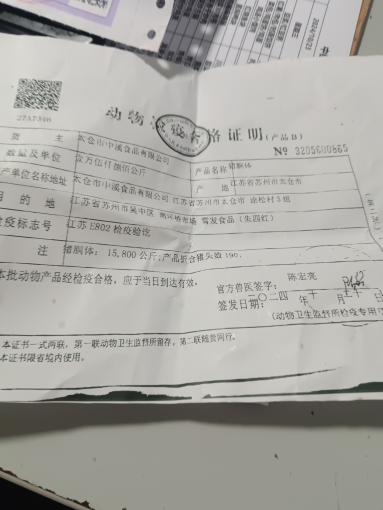 2024/10/23
动物 检疫合格证明(产品B)
2737346
№ 3205600865
货 主 太仓市中溪食品有限公司
产品名称 猪胴体
数量及单位 壹万伍仟捌佰公斤
产 地 江苏省苏州市太仓市
产单位名称地址 太仓市中溪食品有限公司 江苏省苏州市太仓市 涂松村3组
目 的 地 江苏省苏州市吴中区 市场 莺发食品(朱四红)
检疫标志号 江苏E802检疫验讫
备 注 猪胴体: 15,800公斤;产品折合猪头数190.
本批动物产品经检疫合格,应于当日到达有效。
官方兽医签字: 陈宏亮
签发日期: 二〇二四 年 十 月 二十 日
(动物卫生监督所检疫专用章
本证书一式两联,第一联动物卫生监督所留存,第二联随货同行。
本证书限省境内使用。